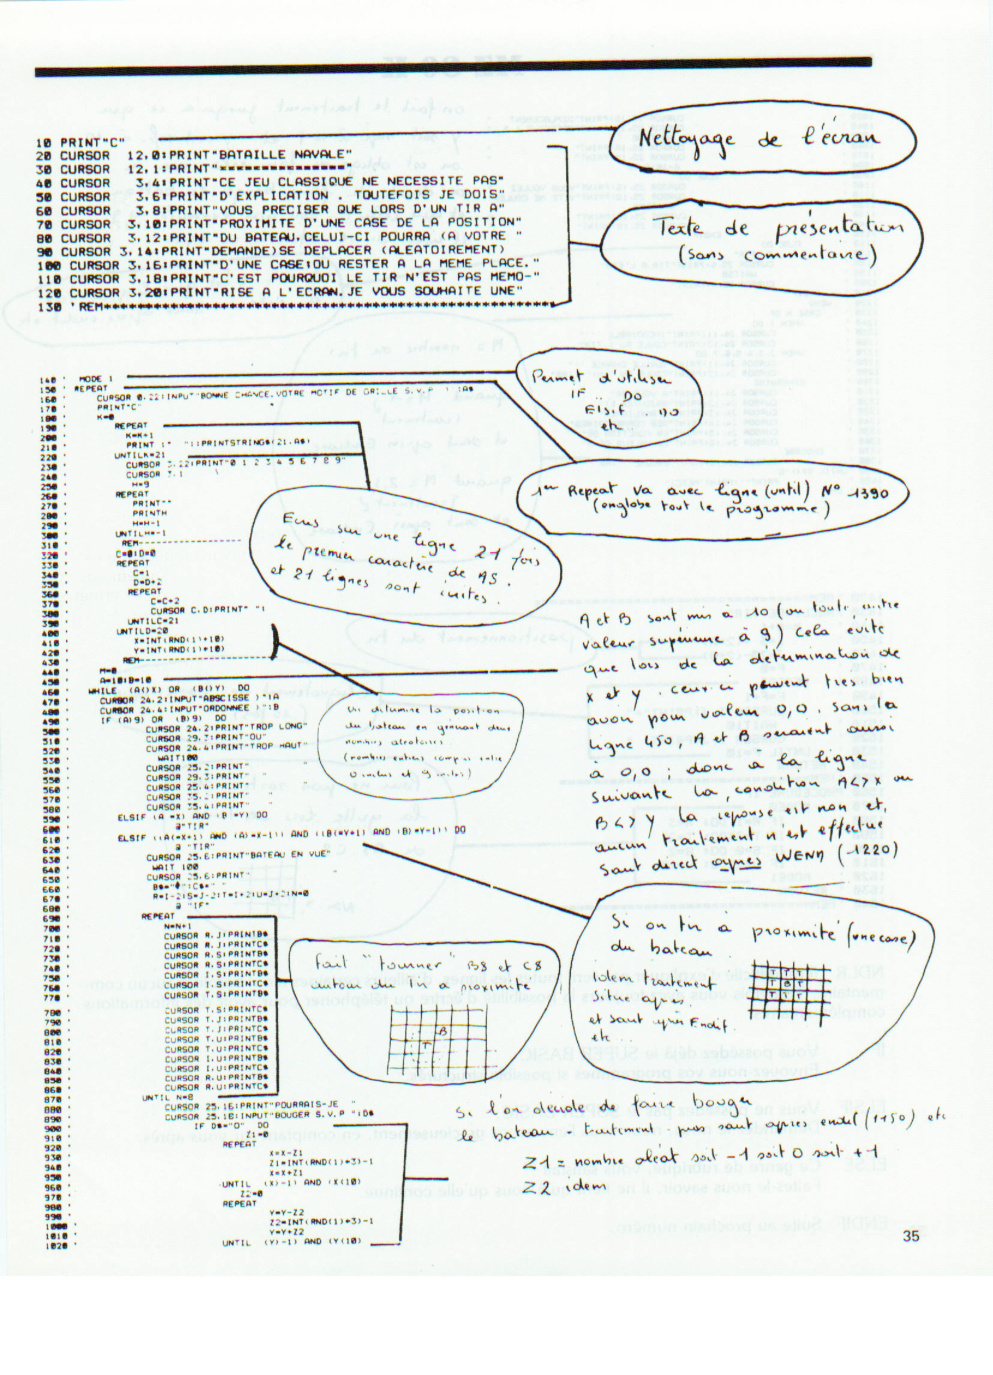 10 PRINT"C"
20 CURSOR 12,0:PRINT"BATAILLE NAVALE"
30 CURSOR 12,1:PRINT"==============="
40 CURSOR 3,4:PRINT"CE JEU CLASSIQUE NE NECESSITE PAS"
50 CURSOR 3,6:PRINT"D'EXPLICATION . TOUTEFOIS JE DOIS"
60 CURSOR 3,8:PRINT"VOUS PRECISER QUE LORS D'UN TIR A"
70 CURSOR 3,10:PRINT"PROXIMITE D'UNE CASE DE LA POSITION"
80 CURSOR 3,12:PRINT"DU BATEAU,CELUI-CI POURRA (A VOTRE "
90 CURSOR 3,14:PRINT"DEMANDE)SE DEPLACER (ALEATOIREMENT)
100 CURSOR 3,16:PRINT"D'UNE CASE:OU RESTER A LA MEME PLACE."
110 CURSOR 3,18:PRINT"C'EST POURQUOI LE TIR N'EST PAS MEMO-"
120 CURSOR 3,20:PRINT"RISE A L'ECRAN.JE VOUS SOUHAITE UNE"
130 'REM**************************************************
Nettoyage de l'écran
Texte de présentation
(sans commentaire)
140 ' MODE 1
150 ' REPEAT
160 ' CURSOR 0,22:INPUT"BONNE CHANCE.VOTRE MOTIF DE GRILLE S.V.P ";A$
170 ' PRINT"C"
180 ' K=0
190 ' REPEAT
200 ' K=K+1
210 ' PRINT 1" ";:PRINTSTRING$(21,A$)
220 ' UNTILK=21
230 ' CURSOR 3,22:PRINT"0 1 2 3 4 5 6 7 8 9"
240 ' CURSOR 3,1
250 ' H=9
260 ' REPEAT
270 ' PRINT""
280 ' PRINTH
290 ' H=H-1
300 ' UNTILH=-1
310 ' REM
320 ' C=0:D=0
330 ' REPEAT
340 ' C=1
350 ' D=D+2
360 ' REPEAT
370 ' C=C+2
380 ' CURSOR C,D:PRINT" ";
390 ' UNTILC=21
400 ' UNTILD=20
410 ' X=INT(RND(1)*10)
420 ' Y=INT(RND(1)*10)
430 ' REM
440 ' M=0
450 ' A=10:B=10
460 ' WHILE (A<>X) OR (B<>Y) DO
470 ' CURSOR 24,2:INPUT"ABSCISSE )";A
480 ' CURSOR 24,4:INPUT"ORDONNEE )";B
490 ' IF (A>9) OR (B>9) DO
500 ' CURSOR 24,2:PRINT"TROP LONG"
510 ' CURSOR 29,3:PRINT"OU"
520 ' CURSOR 24,4:PRINT"TROP HAUT"
530 ' WAIT100
540 ' CURSOR 25,2:PRINT" "
550 ' CURSOR 29,3:PRINT" "
560 ' CURSOR 25,4:PRINT" "
570 ' CURSOR 35,2:PRINT" "
580 ' CURSOR 35,4:PRINT" "
590 ' ELSIF (A =X) AND (B =Y) DO
600 ' @"TIR"
610 ' ELSIF ((A(=X+1) AND (A)=X-1)) AND ((B(=Y+1) AND (B)=Y-1)) DO
620 ' @ "TIR"
630 ' CURSOR 25,6:PRINT"BATEAU EN VUE"
640 ' WAIT 100
650 ' CURSOR 25,6:PRINT" "
670 ' R=I-2:S=J-2:T=I+2:U=J+2:N=0
680 ' @ "IF"
690 ' REPEAT
700 ' N=N+1
710 ' CURSOR R,J:PRINTB$
720 ' CURSOR R,J:PRINTC$
730 ' CURSOR R,S:PRINTB$
740 ' CURSOR R,S:PRINTC$
750 ' CURSOR I,S:PRINTB$
760 ' CURSOR I,S:PRINTC$
770 ' CURSOR T,S:PRINTB$
780 ' CURSOR T,S:PRINTC$
790 ' CURSOR T,J:PRINTB$
800 ' CURSOR T,J:PRINTC$
810 ' CURSOR T,U:PRINTB$
820 ' CURSOR T,U:PRINTC$
830 ' CURSOR I,U:PRINTB$
840 ' CURSOR I,U:PRINTC$
850 ' CURSOR R,U:PRINTB$
860 ' CURSOR R,U:PRINTC$
870 ' UNTIL N=8
880 ' CURSOR 25,16:PRINT"POURRAIS-JE "
890 ' CURSOR 25,18:INPUT"BOUGER S.V.P ";D$
900 ' IF D$="O" DO
910 ' Z1=0
920 ' REPEAT
930 ' X=X-Z1
940 ' Z1=INT(RND(1)*3)-1
950 ' X=X+Z1
960 ' UNTIL (X>-1) AND (X<10)
970 ' Z2=0
980 ' REPEAT
990 ' Y=Y-Z2
1000 ' Z2=INT(RND(1)*3)-1
1010 ' Y=Y+Z2
1020 ' UNTIL (Y>-1) AND (Y<10)
Permet d'utiliser
IF .. DO
Elsif .. DO
etc
1er Repeat va avec ligne (until) N° 1390
(englobe tout le programme)
Ecris sur une ligne 21 fois
le premier caractère de A$.
et 21 lignes sont écrites.
A et B sont mis à 10 (ou toute autre
valeur supérieure à 9) Cela évite
que lors de la détermination de
X et Y . ceux-ci peuvent très bien
avoir pour valeur 0,0 . Sans la
ligne 450, A et B seraient aussi
à 0,0 . donc à la ligne
suivante la condition A<>X ou
B<>Y la réponse est non et,
aucun traitement n'est effectué
Saut direct après WEND (1220)
On détermine la position
du bateau en générant deux
nombres aléatoires
(nombres entiers compris entre
0 inclus et 9 inclus)
Si on tir à proximité (une case)
du bateau
Idem traitement
Situé après
et saut après Endif
etc
T T T
T B T
T T T
Fait "tourner" B$ et C$
autour du Tir à proximité !
B
T
Si l'on décide de faire bouger
le bateau - traitement, puis saut après endif (1150) etc
Z1 = nombre aléat soit -1 soit 0 soit +1
Z2 idem
35